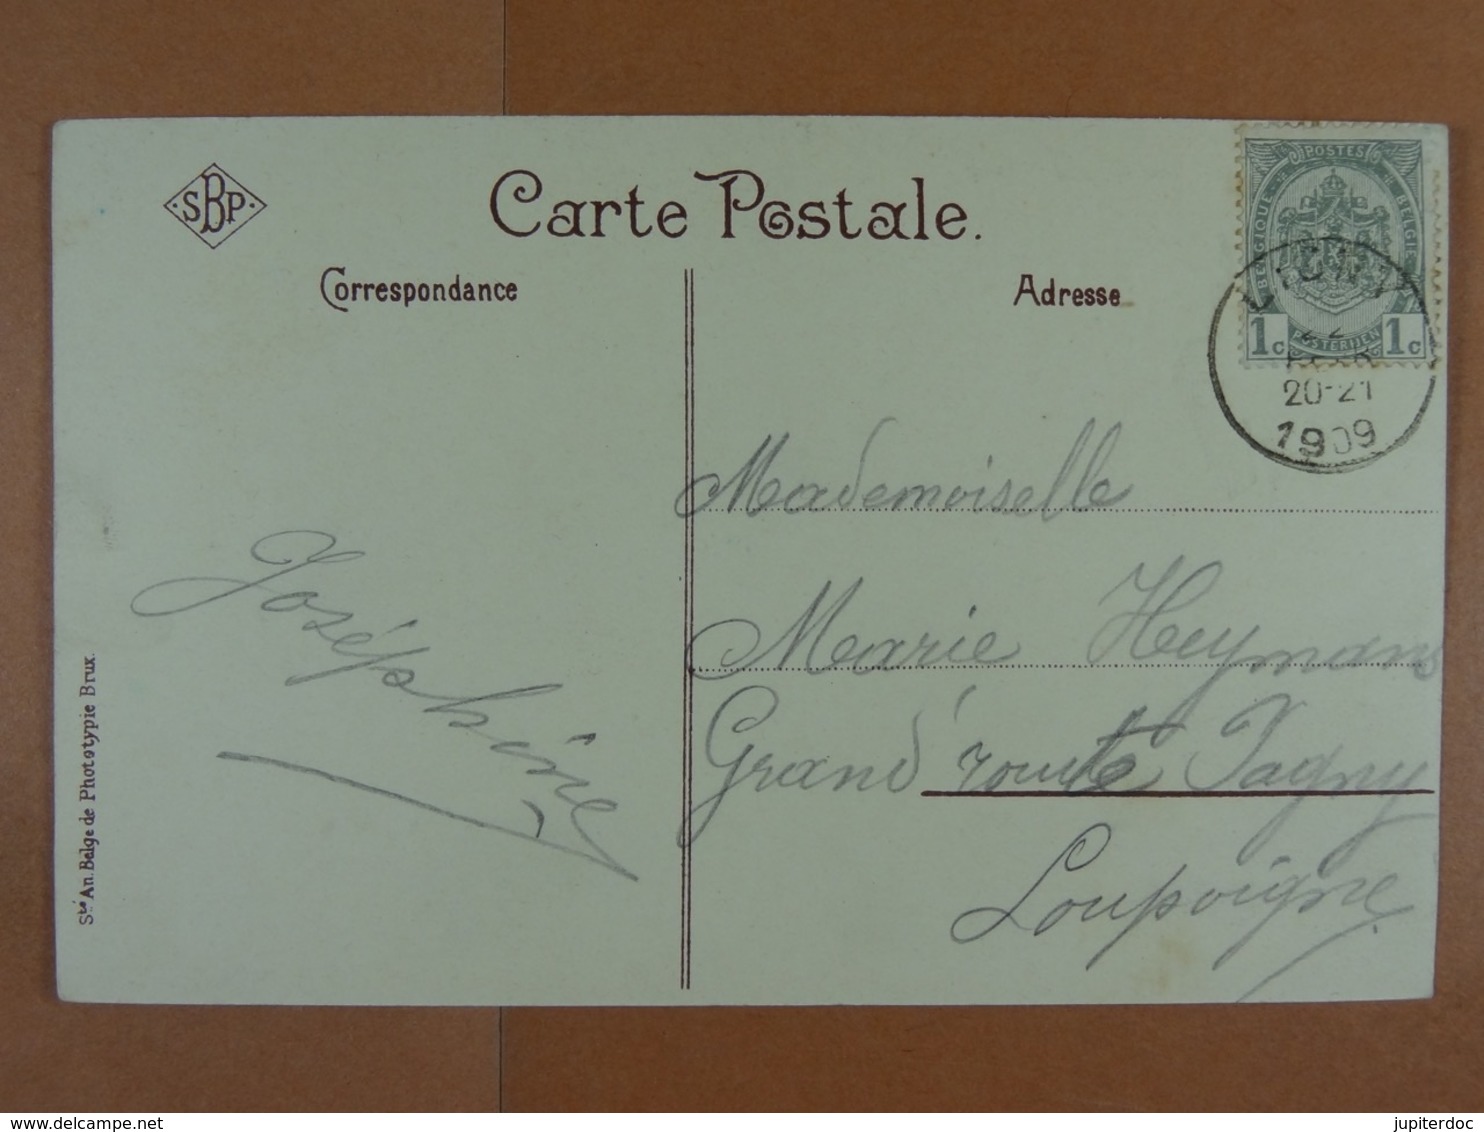 SBP
Carte Postale.
Correspondance
Adresse
POSTES
BELGIQUE
BELGIË
1c POSTERIJEN 1c
22
20-21
1909
Mademoiselle
Marie Heymans
Grand'route Jagny
Loupoigne
Joséphine
Sté An. Belge de Phototypie Brux.
www.delcampe.net
jupiterdoc